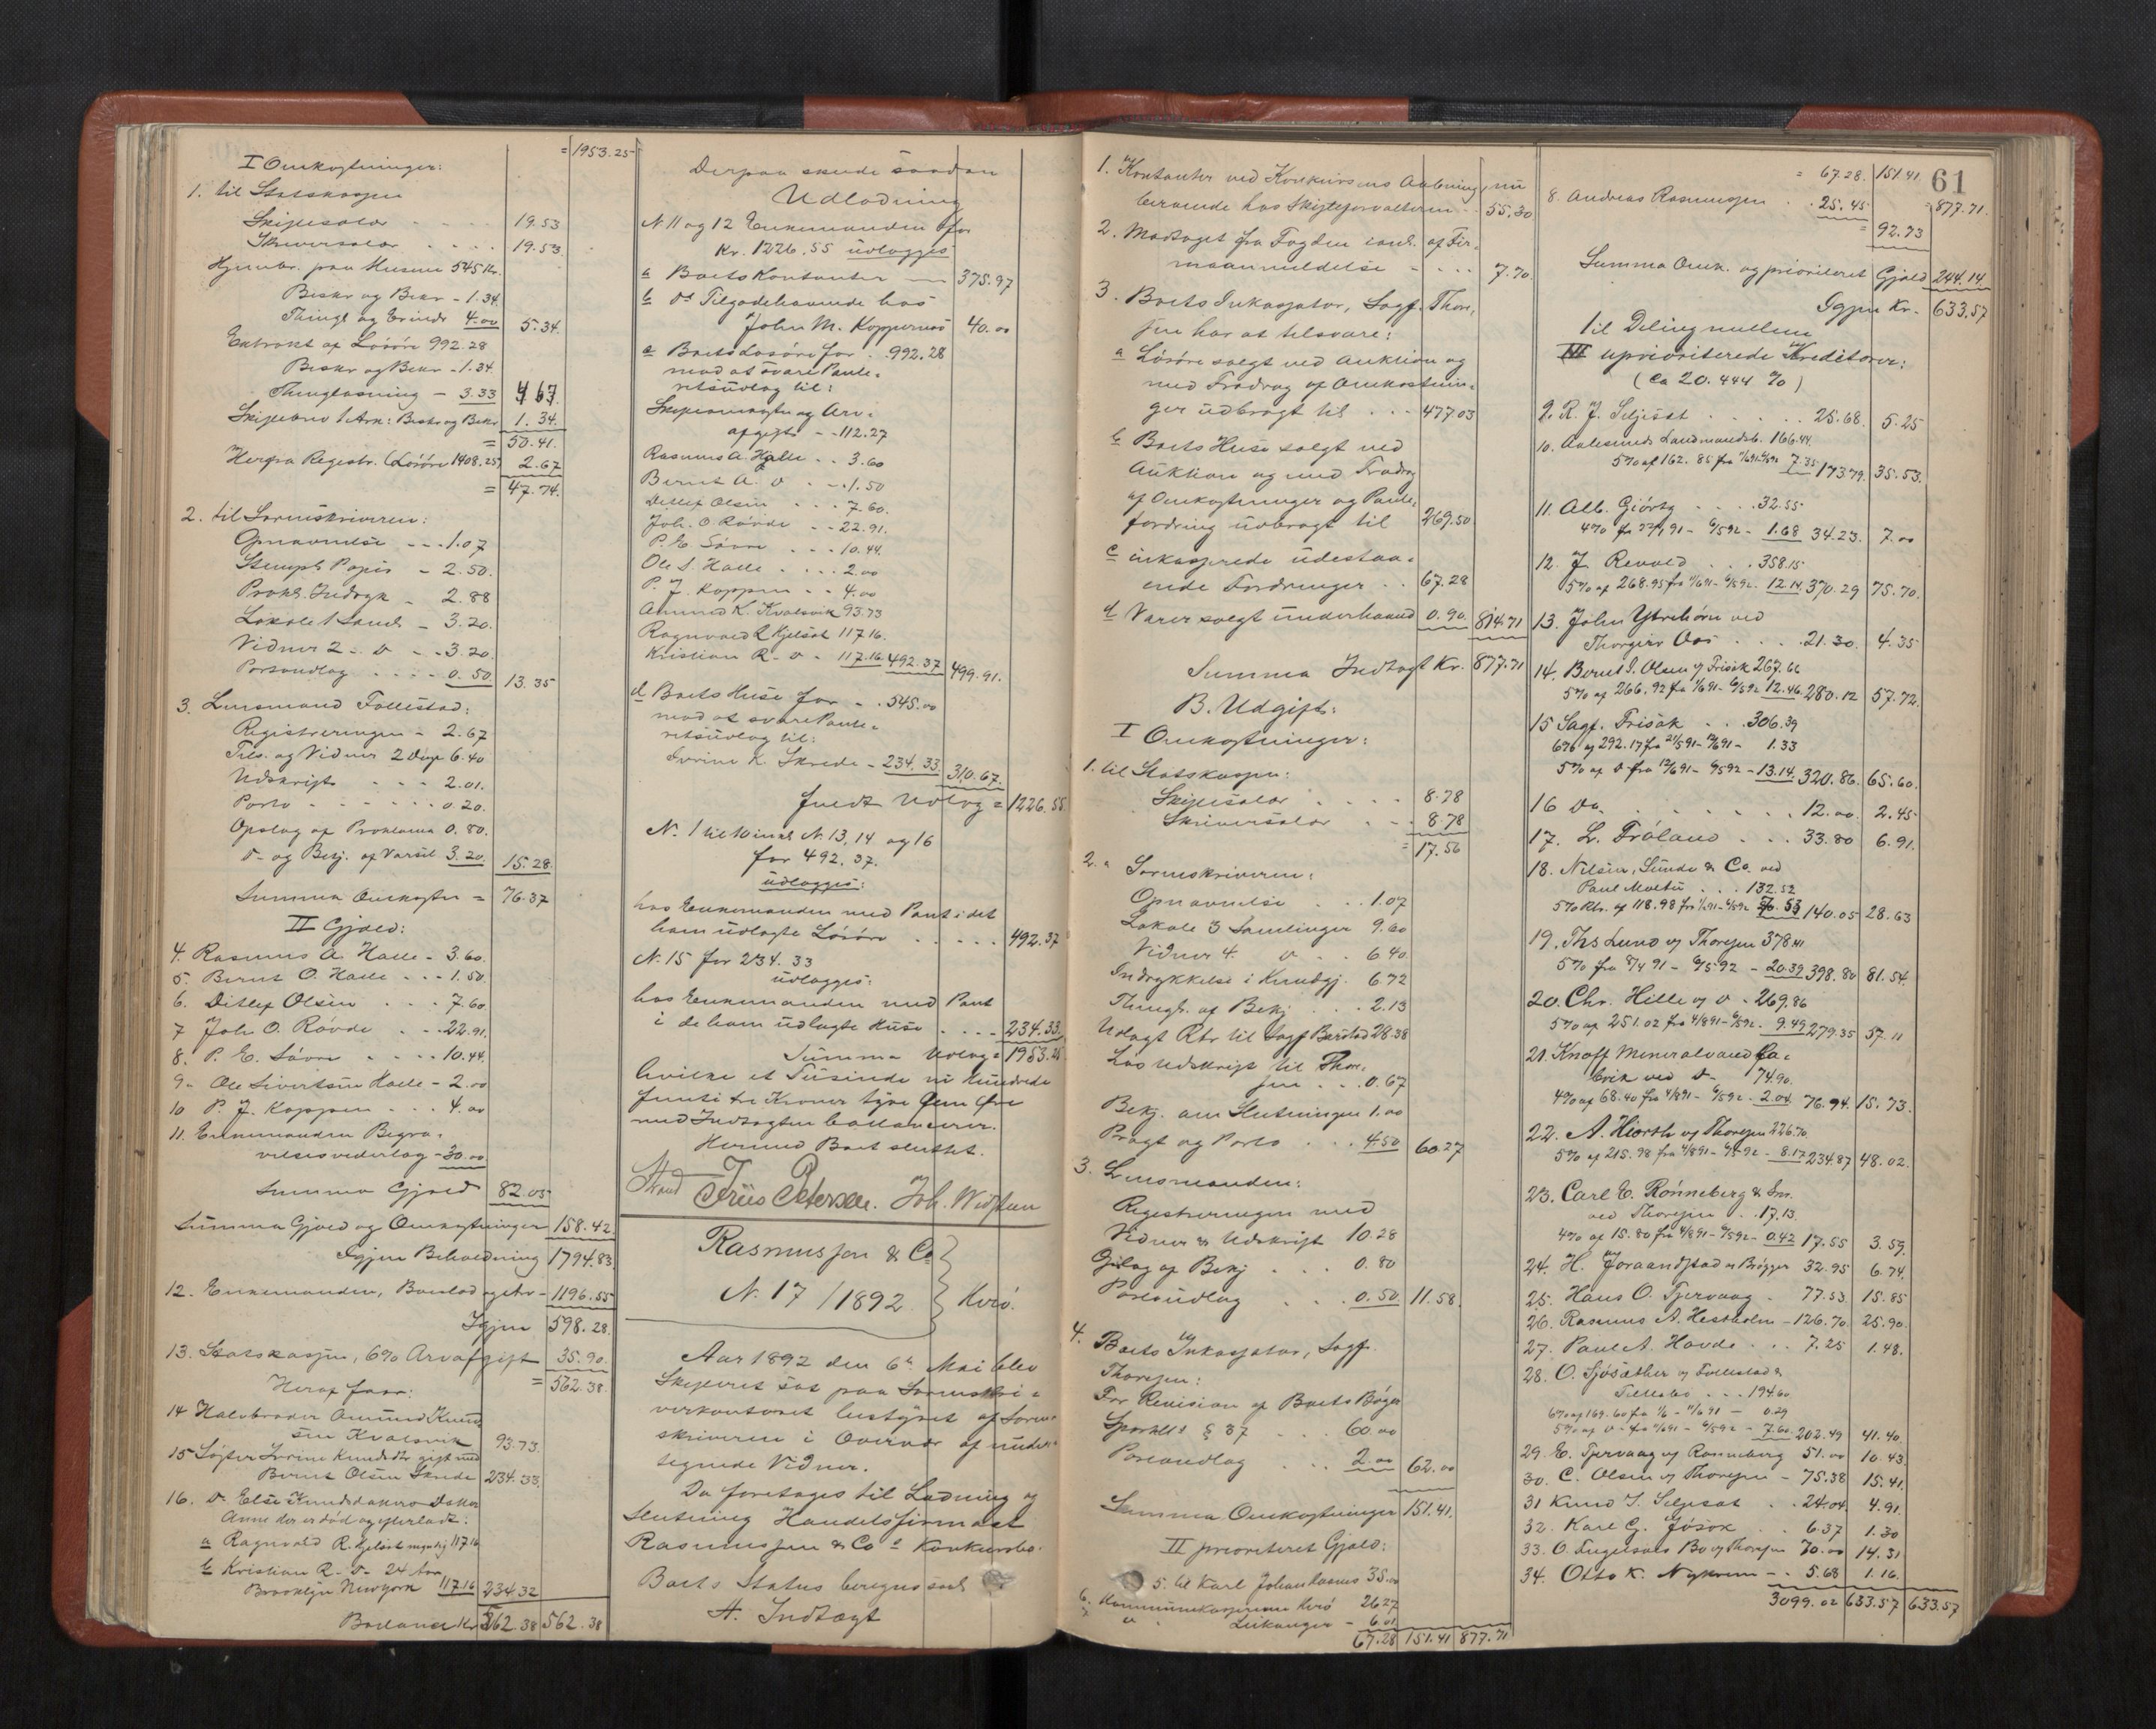 = 1953.25
I Omkostninger:
1. til Statskassen
Skiftesalær . . . 19.53
Skriversalær . . . 19.53
Hjemler paa Husene 545 Kr.
Beskr og Bekr - 1.34.
Thingl og Erindr 4.00 5.34.
Extrakt af Løsøre 992.28
Beskr og Bekr - 1.34.
Thinglæsning - 3.33 4 67.
Skiftebrev 1 Ark: Beskr og Bekr 1.34.
= 50.41.
Herfra Registr. (Løsøre 1408.25) 2.67
= 47.74.
2. til Sorenskriveren:
Opnævnelse - - - 1.07
Stempl. Papir - 2.50.
Prokl. Indryk - 2.88
Lokale 1 Saml. - 3.20.
Vidner 2 - D - - 3.20.
Portoudlæg . . . . 0.50 13.35
3. Lensmand Follestad:
Registreringen - 2.67
Tils. og Vidner 2 Dage 6.40
Udskrift - - - 2.01.
Porto - - - - - - 0.20.
Opslag af Proklama 0.80.
D- og Bekj. af Varsel 3.20. 15.28.
Summa Omkostn = 76.37
II Gjæld:
4. Rasmus A. Halle - 3.60.
5. Bernt O. Halle - - - 1.50.
6. Ditlef Olsen - - - 7.60
7 Joh. O. Røvde . - - 22.91.
8. P. E. Søvre . . - - 10.44.
9. Ole Sivertsen Halle - 2.00
10 P. J. Koppen - - - 4.00
11. Enkemanden Begra-
velsesvederlag - 30.00
Summa Gjæld 82.05
Summa Gjæld og Omkostninger 158.42
Igjen Beholdning 1794.83
12. Enkemanden, Boeslod og ... - 1196.55
Igjen 598.28.
13. Statskassen, 6% Arvafgift 35.90.
Heraf faar: = 562.38.
14 Halvbroder Amund Knud-
sen Kvalsvik 93.73.
15 Søster Severine Knudsdtr gift med
Bernt Olsen Skrede 234.33.
16. D. Else Knudsdatters Datter
Anne der er død og efterladt:
a Ragnvald R. Hjelset myndig 117.16
b Kristian R - D - 24 Aar
Brooklyn New York 117.16 234.32
Balance Kr 562.38 562.38
Derpaa skeede saadan
Udlodning
N. 11 og 12 Enkemanden for
Kr. 1226.55 udlægges
a Boets Kontanter - 375.97
b ds Tilgodehavende hos
John M. Koppernæs 40.00
c Boets Løsøre for . . 992.28
mod at svare Pante-
retsudlæg til:
Skifteomkostn og Arv-
afgift - - 112.27
Rasmus A. Halle . . 3.60
Bernt A. D . - - 1.50
Ditlef Olsen . . . 7.60.
Joh. O Røvde . - - 22.91.
P. E. Søvre . . . 10.44.
Ole S. Halle . . . . 2.00
P. J. Koppen . - - 4.00
Amund K. Kvalsvik 93.73
Ragnvald R Hjelset 117.16.
Kristian R - D - 117.16. 492.37 499.91.
d Boets Huse for . . 545.00
mod at svare Pante-
retsudlæg til:
Severine K. Skrede - 234.33 310.67.
fuldt Udlæg = 1226.55
N. 1 til 10 incl N. 13, 14 og 16
for 492.37.
udlægges:
hos Enkemanden med Pant i det
ham udlagte Løsøre . . . . . 492.37
N. 15 for 234.33
udlægges:
hos Enkemanden med Pant
i de ham udlagte Huse . . . . 234.33.
Summa Udlæg = 1953.25
hvilke et Tusinde ni Hundrede
femti tre Kroner tyve fem Øre
med Indtægten ballancerer.
Hermed Boet sluttet.
Strand Friis Petersen. Joh. Widsteen
Rasmussen & Co
N. 17 / 1892. } Herø.
Aar 1892 den 6te Mai blev
Skifteret sat paa Sorenskri-
verkontoret bestyret af Soren-
skriveren i Overvær af under-
tegnede Vidner.
Da foretages til Lodning og
Slutning Handelsfirmaet
Rasmussen & Co s Konkursbo.
Boets Status beregnes saal.
A. Indtægt
61
1. Kontanter ved Konkursens Aabning, nu
beroende hos Skifteforvalteren . . 55.30
2. Modtaget fra Fogden inds. af Fir-
maanmeldelse - - - - 7.70
3. Boets Inkassator, Sagf. Thore-
sen har at tilsvare:
a Løsøre solgt ved Auktion og
med Fradrag af Omkostnin-
ger udbragt til . . . 477.03
b Boets Huse solgt ved
Auktion og med Fradrag
af Omkostninger og Pante-
fordring udbragt til 269.50
c inkasserede udestaa-
ende Fordringer . . 67.28
d Varer solgt underhaand 0.90. 814.71
Summa Indtægt Kr. 877.71
B. Udgift:
I Omkostninger:
1. til Statskassen:
Skiftesalær . . . . 8.78
Skriversalær . . . . 8.78
= 17.56
2. " Sorenskriveren:
Opnævnelse . . . 1.07
Lokale 3 Samlinger 9.60
Vidner 4. D . . 6.40.
Indrykkelse i Kundgj. 6.72
Thingl. af Bekj . . . 2.13
Udlagt Rbr til Sagf Barstad 28.38
Løs Udskrift til Thore-
sen . . . 0.67
Bekj. om Slutningen 1.00
Fragt og Porto . . . 4.50 60.27
3. Lensmanden:
Registreringen med
Vidner & Udskrift 10.28
Opslag af Bekj . . . 0.80
Portoudlæg . . . 0.50 11.58.
4. Boets Inkassator, Sagf.
Thoresen:
For Revision af Boets Bøger
Sportl. § 87 . . . 60.00
Portoudlæg . . . 2.00 62.00
Summa Omkostninger 151.41.
II prioriteret Gjæld:
5. til Karl Johan Rasmus 35.00
6. Kommunekassereren Herø 26.27
7 D Leikanger - 6.01
67.28 151.41 877.71
= 67.28. 151.41. = 877.71.
8. Andreas Rasmussen . . 25.45
= 92.73
Summa Omk. og prioriteret Gjæld 244.14.
Igjen Kr. - 633.57
til Deling mellem
III uprioriterede Kreditorer:
(ca 20.444 %)
9. R. J. Seljeset . . . . . 25.68. 5.25
10. Aalesunds Landmandsb. 166.44.
5% af 162.85 fra 11/6 91 - 6/5 92 7.35 173.79. 35.53.
11. Alb. Gjørtz . . . . 32.55
4% fra 27/1 91 - 6/5 92 - 1.68 34.23. 7.00
12. J. Revold . . . 358.15
5% af 268.95 fra 11/6 91 - 6/5 92. 12.14. 370.29 75.70.
13. John Ytrehorn ved
Thorgeir Oos . . . 21.30. 4.35
14. Bernt J. Olsen v/ Frisak 267.66
5% af 266.92 fra 11/6 91 - 6/5 92 12.46. 280.12 57.72.
15 Sagf. Frisak . . . 306.39
6% af 292.17 fra 21/5 91 - 12/6 91 - 1.33
5% af D fra 12/6 91 - 6/5 92 - 13.14. 320.86. 65.60.
16 Do. . . . . . . . 12.00. 2.45
17. L. Frøland . . . 33.80 6.91.
18. Nilsen, Sunde & Co. ved
Paul Moltu . . . 132.52
5% Rbr. af 118.98 fra 1/2 91 - 6/5 92 7.53 140.05 28.63
19. Ths Lund v/ Thoresen 378.41
5% fra 8/4 91 - 6/5 92 - 20.39 398.80 81.54.
20. Chr. Hille v/ D - 269.86
5% af 251.02 fra 4/8 91 - 6/5 92. 9.49 279.35 57.11
21. Knoff Mineralvand fa-
brik ved D - 74.90.
4% af 68.40 fra 4/8 91 - 6/5 92 - 2.04. 76.94. 15.73.
22. A. Hiorth v/ Thoresen 226.70
5% af 215.98 fra 4/8 91 - 6/5 92 - 8.17 234.87 48.02.
23. Carl E. Rønneberg & Sn.
ved Thoresen . . 17.13.
4% af 15.80 fra 4/8 91 - 6/5 92 - 0.42 17.55 3.59.
24. H. Joraandstad v/ Brøgger 32.95 6.74.
25. Hans O. Tjervaag . 77.53 15.85
26. Rasmus A. Hestholm - 126.70 25.90.
27. Paul A. Havde . . . 7.25 1.48.
28. O. Sjøsæther v/ Follestad &
. . . 194.60
6% af 169.60 fra 1/6 - 11/6 91 - 0.29
5% af D - fra 11/6 91 - 6/5 92 - 7.60. 202.49 41.40.
29. E. Tjervaag v/ Ronneberg 51.00 10.43.
30. C. Olsen v/ Thoresen - 75.38 15.41.
31 Knud J. Seljeset . . 24.04 4.91.
32. Karl G. Jøsok . . 6.37 1.30
33. O. Engelsens Bo v/ Thoresen 70.00 14.31
34. Otto K. Nykrem - - 5.68 1.16.
3099.02 633.57 633.57